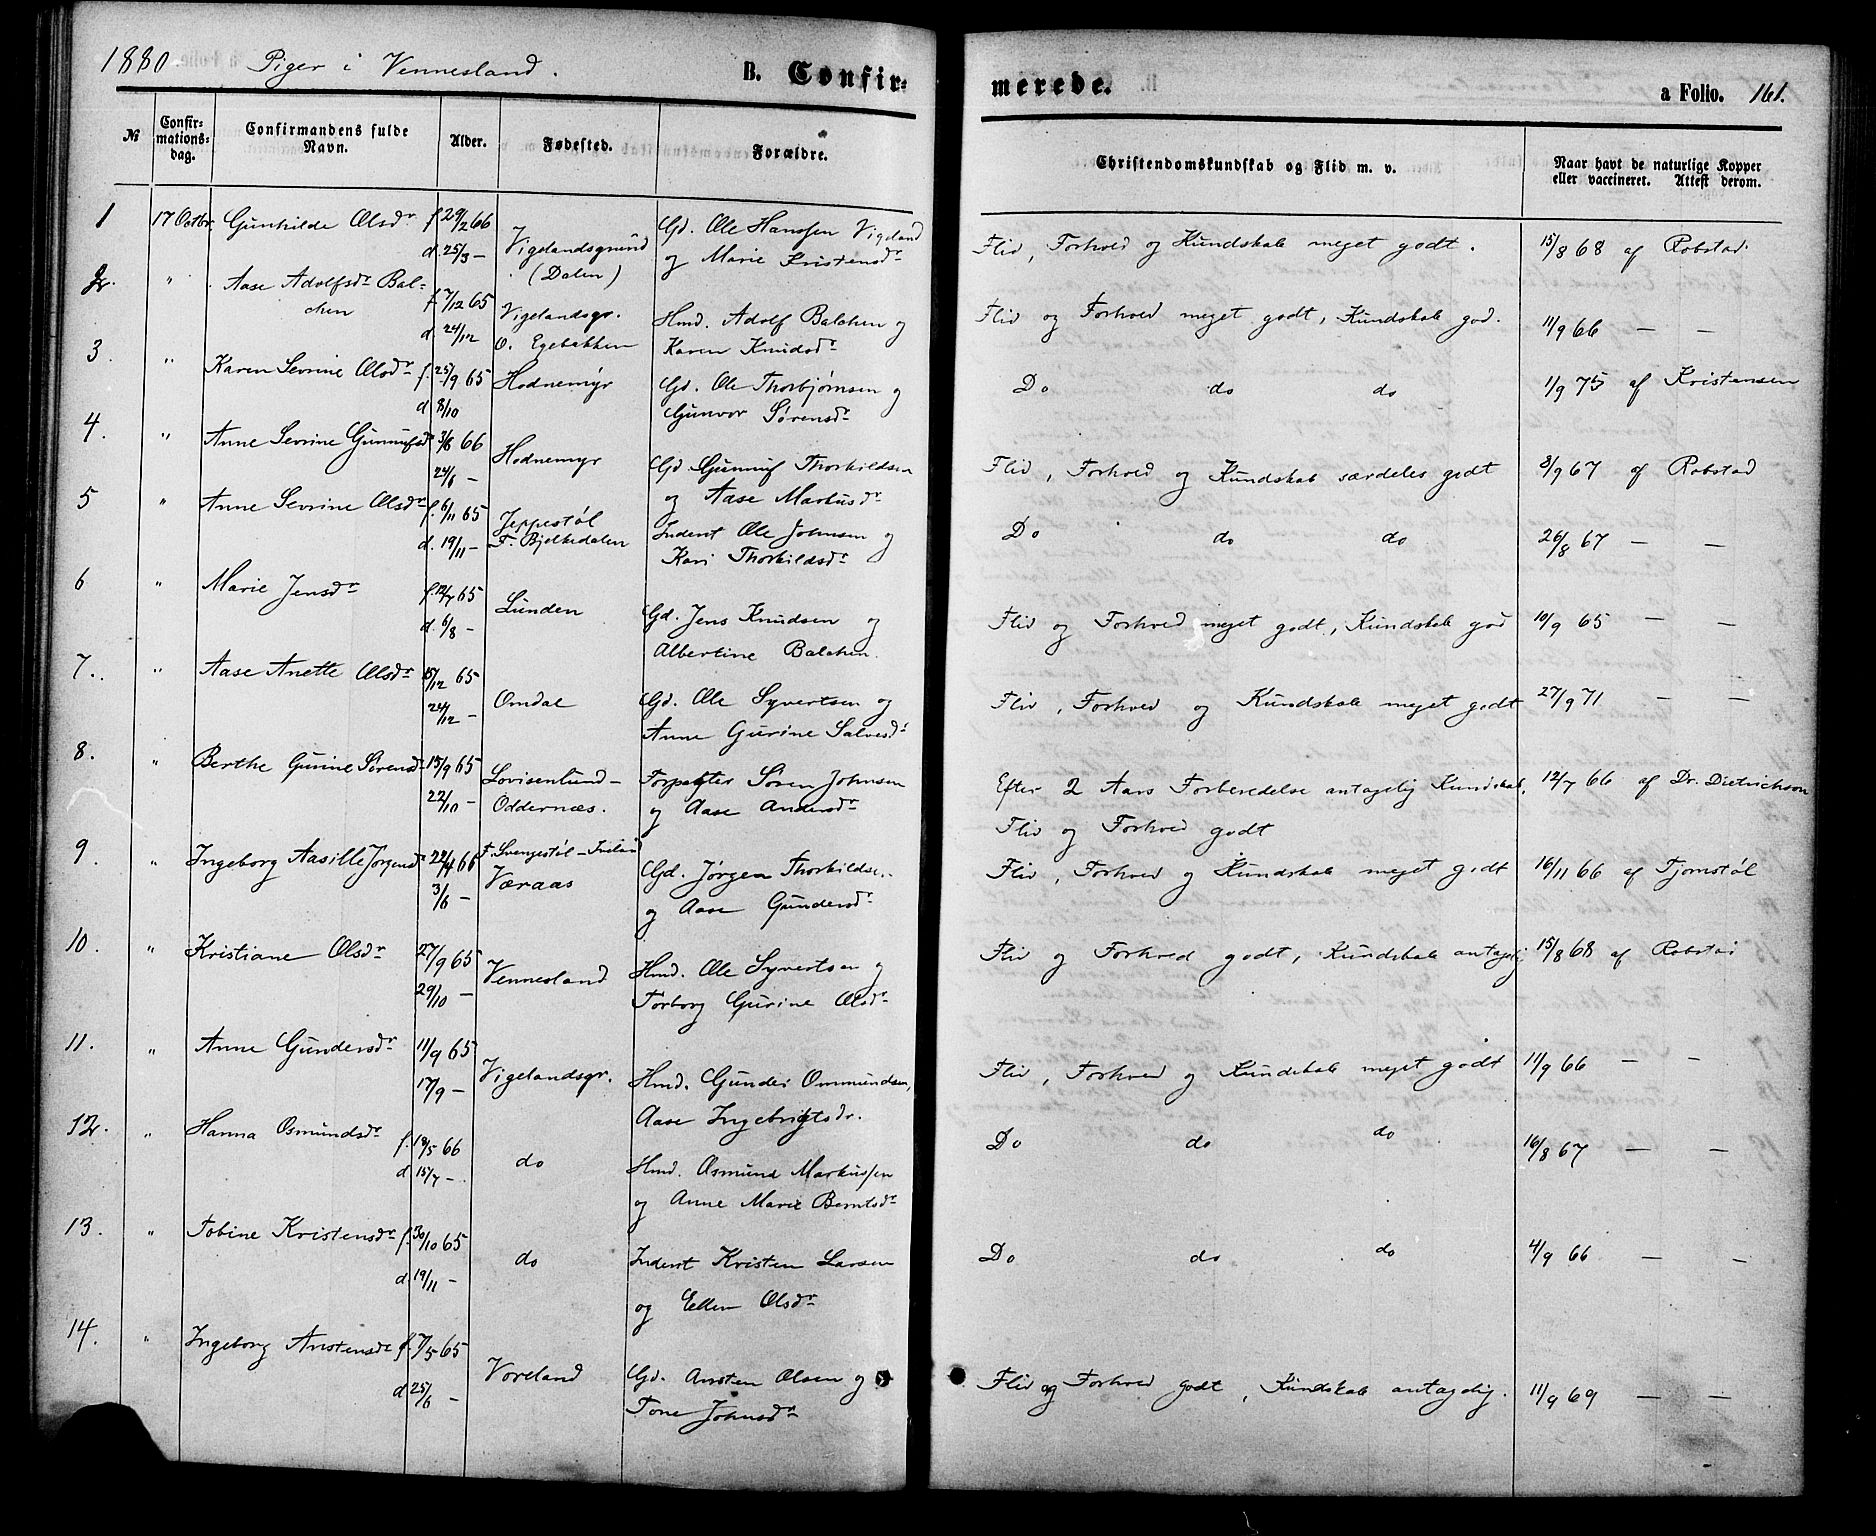 1880. Piger i Vennesland. B. Confir-
merede. a Folio. 161.
№ Confirmationsdag. Confirmandens fulde Navn. Alder. Fødested. Forældre. Christendomskundskab og Flid m. v. Naar havt de naturlige Kopper eller vaccineret. Attest derom.
1 17 Octbr. Gunhilde Olsdr. f. 29/2 66 Vigelandsgrund Gd. Ole Hanssen Vigeland Flid, Forhold og Kundskab meget godt. 15/8 68 af Robstad.
d. 25/3 – (Dalen) og Marie Kristensdr
2. " Aase Adolfsdr Bal- f. 7/12 65 Vigelandsgr. Hmd. Adolf Balchen og Flid og Forhold meget godt, Kundskab god. 11/9 66 – –
chen d 24/12 O. Egebakken Karen Knudsdr
3. " Karen Sevrine Olsdr f. 25/9 65 Hodnemyr Gd. Ole Thorbjørnsen og Do do do 1/9 75 af Kristensen
d 8/10 Gunvor Sørensdr
4. " Anne Sevrine Gunnufsd 3/6 66 Hodnemyr Gd. Gunnuf Thorkildsen Flid, Forhold og Kundskab særdeles godt 8/9 67 af Robstad
24/6 – og Aase Markusdr
5 " Anne Sevrine Olsdr f. 6/11 65 Jeppestøl Inderst Ole Johnsen og Do do do 26/8 67 – –
d. 19/11 – F. Bjelkedalen Kari Thorkildsdr
6 " Marie Jensdr f. 12/7 65 Lunden Gd. Jens Knudsen og Flid og Forhold meget godt, Kundskab god 10/9 65 – –
d. 6/8 – Albertine Balchen.
7. " Aase Anette Olsdr 15/12 65 Omdal Gd. Ole Syvertsen og Flid, Forhold og Kundskab meget godt 27/9 71 – –
24/12 – Anne Gurine Salvesdr
8. " Berthe Gurine Sørensd 15/9 65 Lovisenlund – Søren Johnsen Efter 2 Aars Forberedelse antagelig Kundskab, 12/7 66 af Dr. Dietrichson
22/10 – Oddernæs. og Aase Andersdr Flid og Forhold godt
9. " Ingeborg Aasille Jørgensd 22/4 66 F. Svengestøl – Iveland Gd. Jørgen Thorkildse.. Flid, Forhold og Kundskab meget godt 16/11 66 af Tjomstøl
3/6 – Væraas og Aase Gundersdr
10. " Kristiane Olsdr 27/9 65 Vennesland Hmd. Ole Syvertsen og Flid og Forhold godt, Kundskab antagelig 15/8 68 af Robstad
29/10 – Torborg Gurine Olsdr
11. " Anne Gundersdr 11/9 65 Vigelandsgr. Hmd. Gunder Ommundsen, Flid, Forhold og Kundskab meget godt 11/9 66 – –
17/9 – Aase Ingebrigtsdr.
12. " Hanna Osmundsdr f. 18/5 66 do Hmd. Osmund Markussen Do do do 16/8 67 – –
d 15/7 – og Anne Marie Berntsdr
13. " Tobine Kristensdr f. 30/10 65 do Inderst Kristen Larsen Do do do 4/9 66 – –
d. 19/11 – og Ellen Olsdr
14. " Ingeborg Anstensdr f. 7/5 65 Voreland Gd. Ansten Olsen og Flid og Forhold godt, Kundskab antagelig. 11/9 69 – –
d 25/6 – Tone Johnsdr